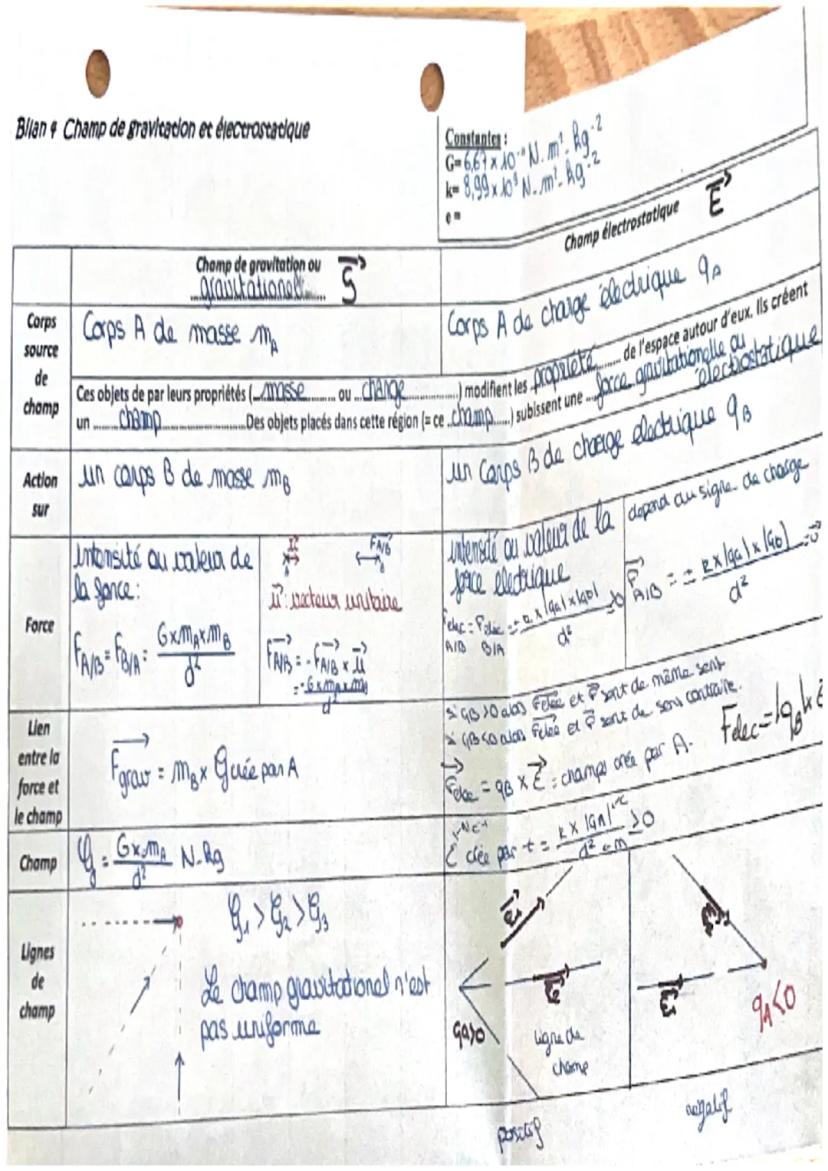 Bilan 4 Champ de gravitation et électrostatique
Constantes :
G= 6,67 x 10⁻¹¹ N. m². kg⁻²
k= 8,99 x 10⁹ N. m². kg⁻²
e =
Champ de gravitation ou
gravitationel
Champ électrostatique E⃗
Corps source de champ
Corps A de masse mA
Corps A de charge électrique qA
Ces objets de par leurs propriétés (masse ou charge) modifient les propriété de l'espace autour d'eux. Ils créent
un champ Des objets placés dans cette région (= ce champ) subissent une force gravitationelle ou électrostatique
Action sur
un corps B de masse mB
un corps B de charge electrique qB
Force
intensité ou valeur de
la force :
FA/B = FB/A = G x mA x mB / d²
u⃗ : vecteur unitaire
FA/B = - FA/B x u⃗
= - G x mA x mB / d
intensité ou valeur de la
force electrique
Felec A/B = Felec B/A
depend du signe de charge
FA/B = ± k x |qA| x |qB| / d²
si qB >0 alors Felec et e⃗ sont de même sens
si qB <0 alors Felec et e⃗ sont de sens contraire.
Lien entre la force et le champ
Fgrav = mB x G créé par A
Felec = qB x E⃗ : champs crée par A.
Felec = |qB| x E
Champ
G = G x mA / d² N-kg
Lignes de champ
G₁ > G₂ > G₃
Le champ gravitationel n'est
pas uniforme
qA>0
ligne de
champ
qA<0
positif
negatif